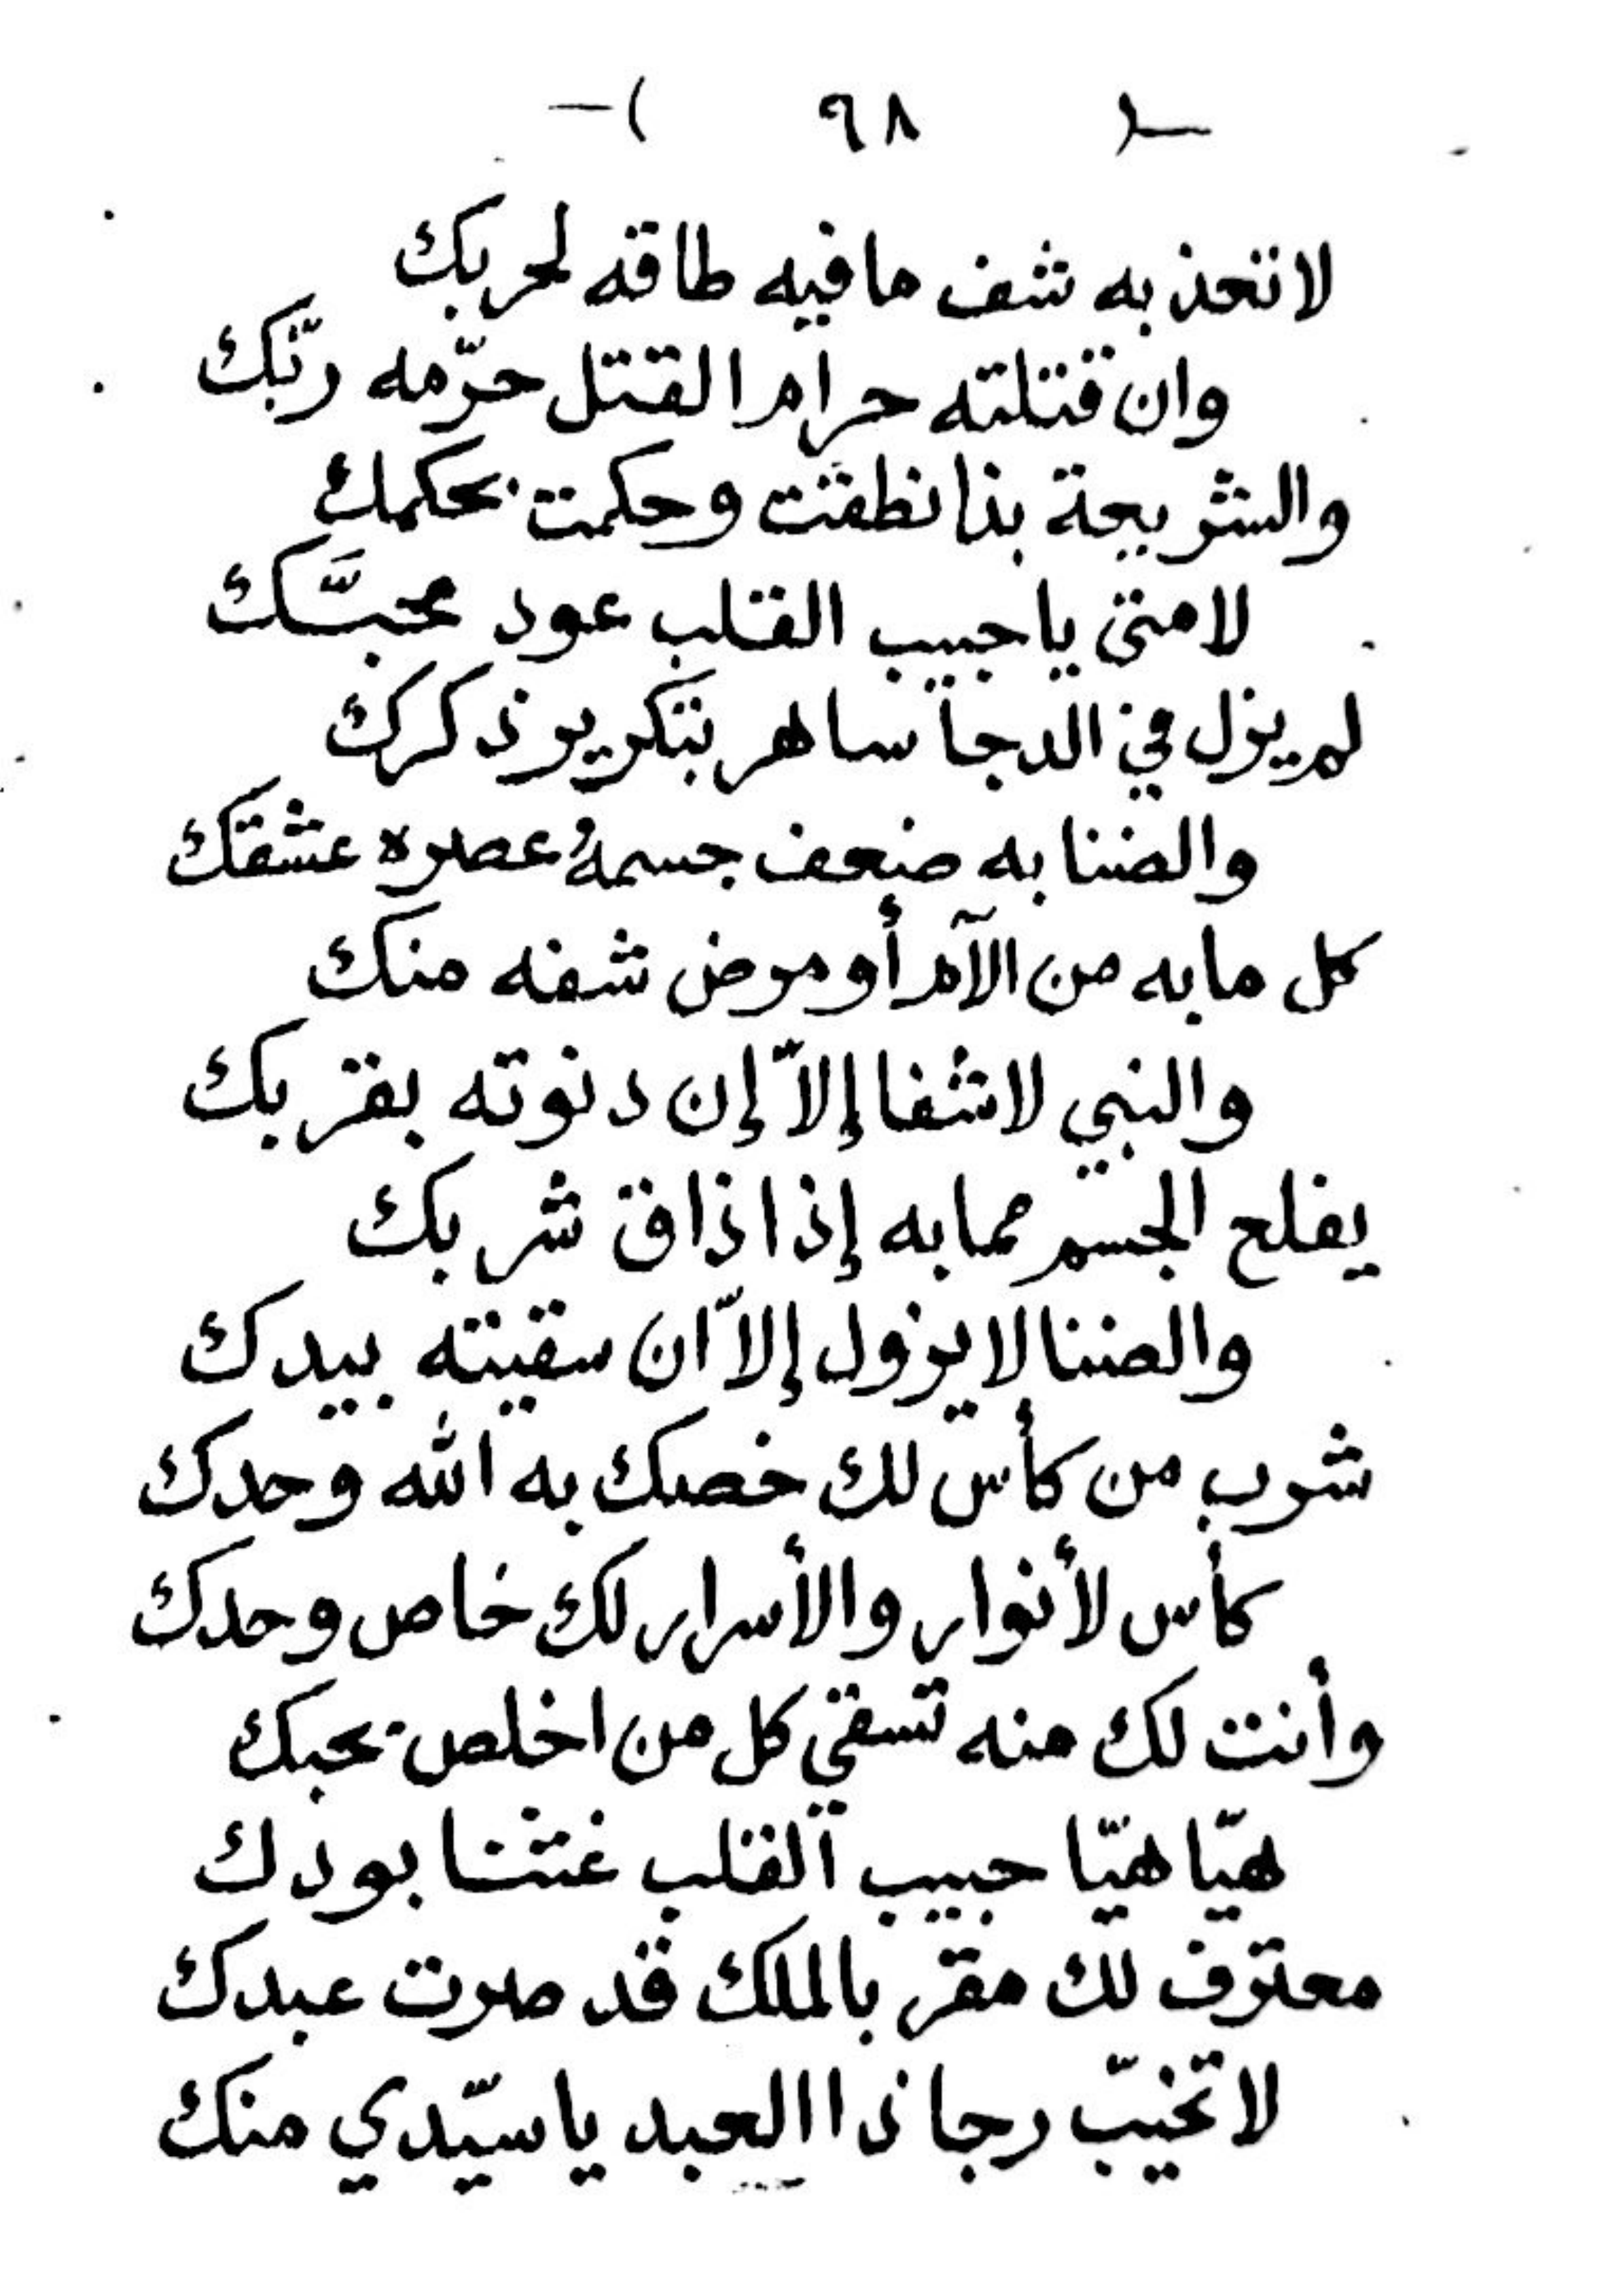 -( ٩٨ )-
لا تتعذبه شف ما فيه طاقه لحربك
وان قتلته حرام القتل حرّمه ربّك
والشريعة بذا نطقت وحكمت بحكمك
لا متى يا حبيب القلب عود محبَّك
لم يزل في الدجا ساهر بتكرير ذكرك
والضنا به ضعف جسمهُ عصره عشقتك
كل ما به من الآم أو مرض شفه منك
والنبي لا شفا إلاّ إن دنوته بقربك
يفلح الجسم مما به إذا ذاق شربك
والضنا لا يزول إلاّ ان سقيته بيدك
شرب من كأس لك خصك به الله وحدك
كأس لأنوار والأسرار لك خاص وحدك
وأنت لك منه تسقي كل من اخلص بحبك
هيّا هيّا حبيب القلب غثنا بودك
معترف لك مقر بالملك قد صرت عبدك
لا تخيّب رجا ذا العبد يا سيّدي منك